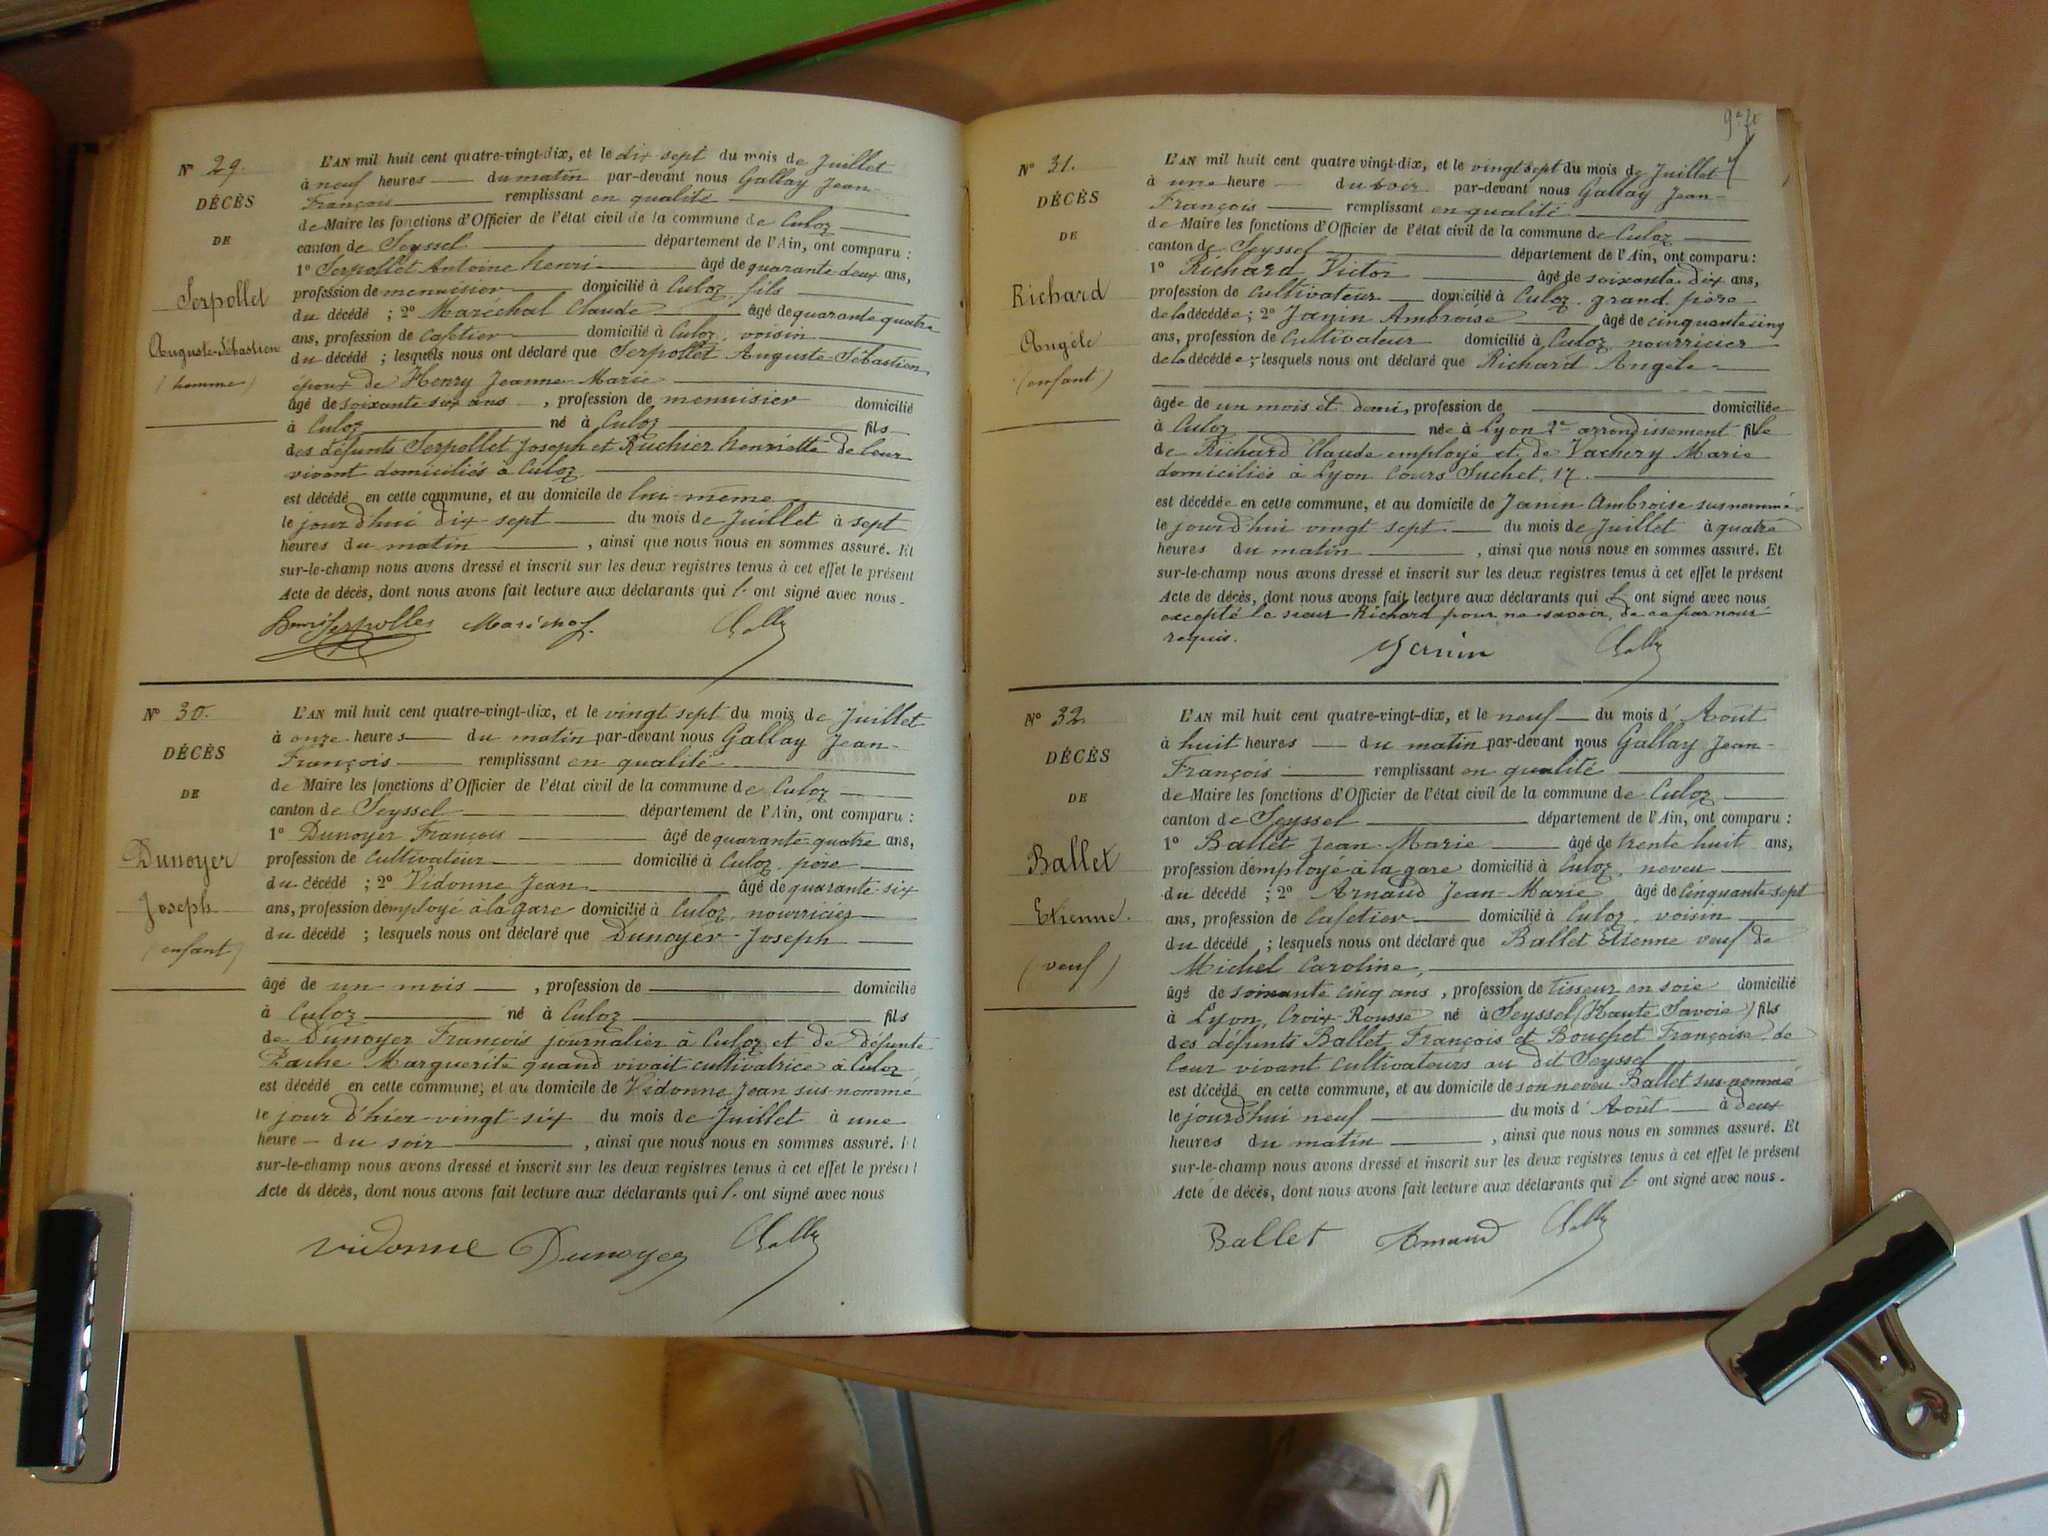 N° 29.
DÉCÈS
DE
Serpollet
Auguste-Sébastien
(homme)
L'AN mil huit cent quatre-vingt-dix, et le dix-sept du mois de Juillet
à neuf heures du matin par-devant nous Gallay Jean-
François remplissant en qualité
de Maire les fonctions d'Officier de l'état civil de la commune de Culoz
canton de Seyssel département de l'Ain, ont comparu :
1° Serpollet Antoine henri âgé de quarante-deux ans,
profession de menuisier domicilié à Culoz, fils
du décédé ; 2° Maréchal Claude âgé de quarante quatre
ans, profession de Cafetier domicilié à Culoz, voisin
du décédé ; lesquels nous ont déclaré que Serpollet Auguste-Sébastien
époux de Henry Jeanne-Marie
âgé de soixante-six ans, profession de menuisier domicilié
à Culoz né à Culoz fils
des défunts Serpollet Joseph et Ruchier henriette de leur
vivant domiciliés à Culoz
est décédé en cette commune, et au domicile de lui-même
le jourd'hui dix-sept du mois de Juillet à sept
heures du matin, ainsi que nous nous en sommes assuré. Et
sur-le-champ nous avons dressé et inscrit sur les deux registres tenus à cet effet le présent
Acte de décès, dont nous avons fait lecture aux déclarants qui l' ont signé avec nous.
Henri Serpollet Maréchal
N° 30.
DÉCÈS
DE
Dunoyer
Joseph
(enfant)
L'AN mil huit cent quatre-vingt-dix, et le vingt sept du mois de Juillet
à onze heures du matin par-devant nous Gallay Jean-
François remplissant en qualité
de Maire les fonctions d'Officier de l'état civil de la commune de Culoz
canton de Seyssel département de l'Ain, ont comparu :
1° Dunoyer François âgé de quarante-quatre ans,
profession de Cultivateur domicilié à Culoz, père
du décédé ; 2° Vidonne Jean âgé de quarante-six
ans, profession d'employé à la gare domicilié à Culoz, nourricier
du décédé ; lesquels nous ont déclaré que Dunoyer Joseph
âgé de un mois, profession de domicilié
à Culoz né à Culoz fils
de Dunoyer François journalier à Culoz et de défunte
Marguerite quand vivait cultivatrice à Culoz
est décédé en cette commune, et au domicile de Vidonne Jean sus-nommé
le jour d'hier vingt-six du mois de Juillet à une
heure du soir, ainsi que nous nous en sommes assuré. Et
sur-le-champ nous avons dressé et inscrit sur les deux registres tenus à cet effet le présent
Acte de décès, dont nous avons fait lecture aux déclarants qui l' ont signé avec nous
Vidonne Dunoyer
N° 31.
DÉCÈS
DE
Richard
Angèle
(enfant)
L'AN mil huit cent quatre-vingt-dix, et le vingt sept du mois de Juillet
à une heure du soir par-devant nous Gallay Jean-
François remplissant en qualité
de Maire les fonctions d'Officier de l'état civil de la commune de Culoz
canton de Seyssel département de l'Ain, ont comparu :
1° Richard Victor âgé de soixante-dix ans,
profession de Cultivateur domicilié à Culoz, grand père
de la décédée ; 2° Janin Ambroise âgé de cinquante cinq
ans, profession de Cultivateur domicilié à Culoz, nourricier
de la décédée ; lesquels nous ont déclaré que Richard Angèle
âgée de un mois et demi, profession de domiciliée
à Culoz née à Lyon 2e arrondissement fille
de Richard Claude employé et de Vachery Marie
domiciliés à Lyon Cours Suchet, 17.
est décédée en cette commune, et au domicile de Janin Ambroise susnommé
le jourd'hui vingt sept du mois de Juillet à quatre
heures du matin, ainsi que nous nous en sommes assuré. Et
sur-le-champ nous avons dressé et inscrit sur les deux registres tenus à cet effet le présent
Acte de décès, dont nous avons fait lecture aux déclarants qui l' ont signé avec nous
excepté le sieur Richard pour ne savoir, de ce par nous
requis.
Janin
N° 32.
DÉCÈS
DE
Ballet
Etienne.
(veuf)
L'AN mil huit cent quatre-vingt-dix, et le neuf du mois d'Août
à huit heures du matin par-devant nous Gallay Jean-
François remplissant en qualité
de Maire les fonctions d'Officier de l'état civil de la commune de Culoz
canton de Seyssel département de l'Ain, ont comparu :
1° Ballet Jean-Marie âgé de trente huit ans,
profession d'employé à la gare domicilié à Culoz, neveu
du décédé ; 2° Arnaud Jean-Marie âgé de cinquante-sept
ans, profession de Cafetier domicilié à Culoz, voisin
du décédé ; lesquels nous ont déclaré que Ballet Etienne veuf de
Michel Caroline,
âgé de soixante cinq ans, profession de tisseur en soie domicilié
à Lyon, Croix-Rousse né à Seyssel (Haute Savoie) fils
des défunts Ballet François et Bouchet Françoise de
leur vivant cultivateurs au dit Seyssel
est décédé en cette commune, et au domicile de son neveu Ballet sus-nommé
le jourd'hui neuf du mois d'Août à deux
heures du matin, ainsi que nous nous en sommes assuré. Et
sur-le-champ nous avons dressé et inscrit sur les deux registres tenus à cet effet le présent
Acte de décès, dont nous avons fait lecture aux déclarants qui l' ont signé avec nous.
Ballet Arnaud